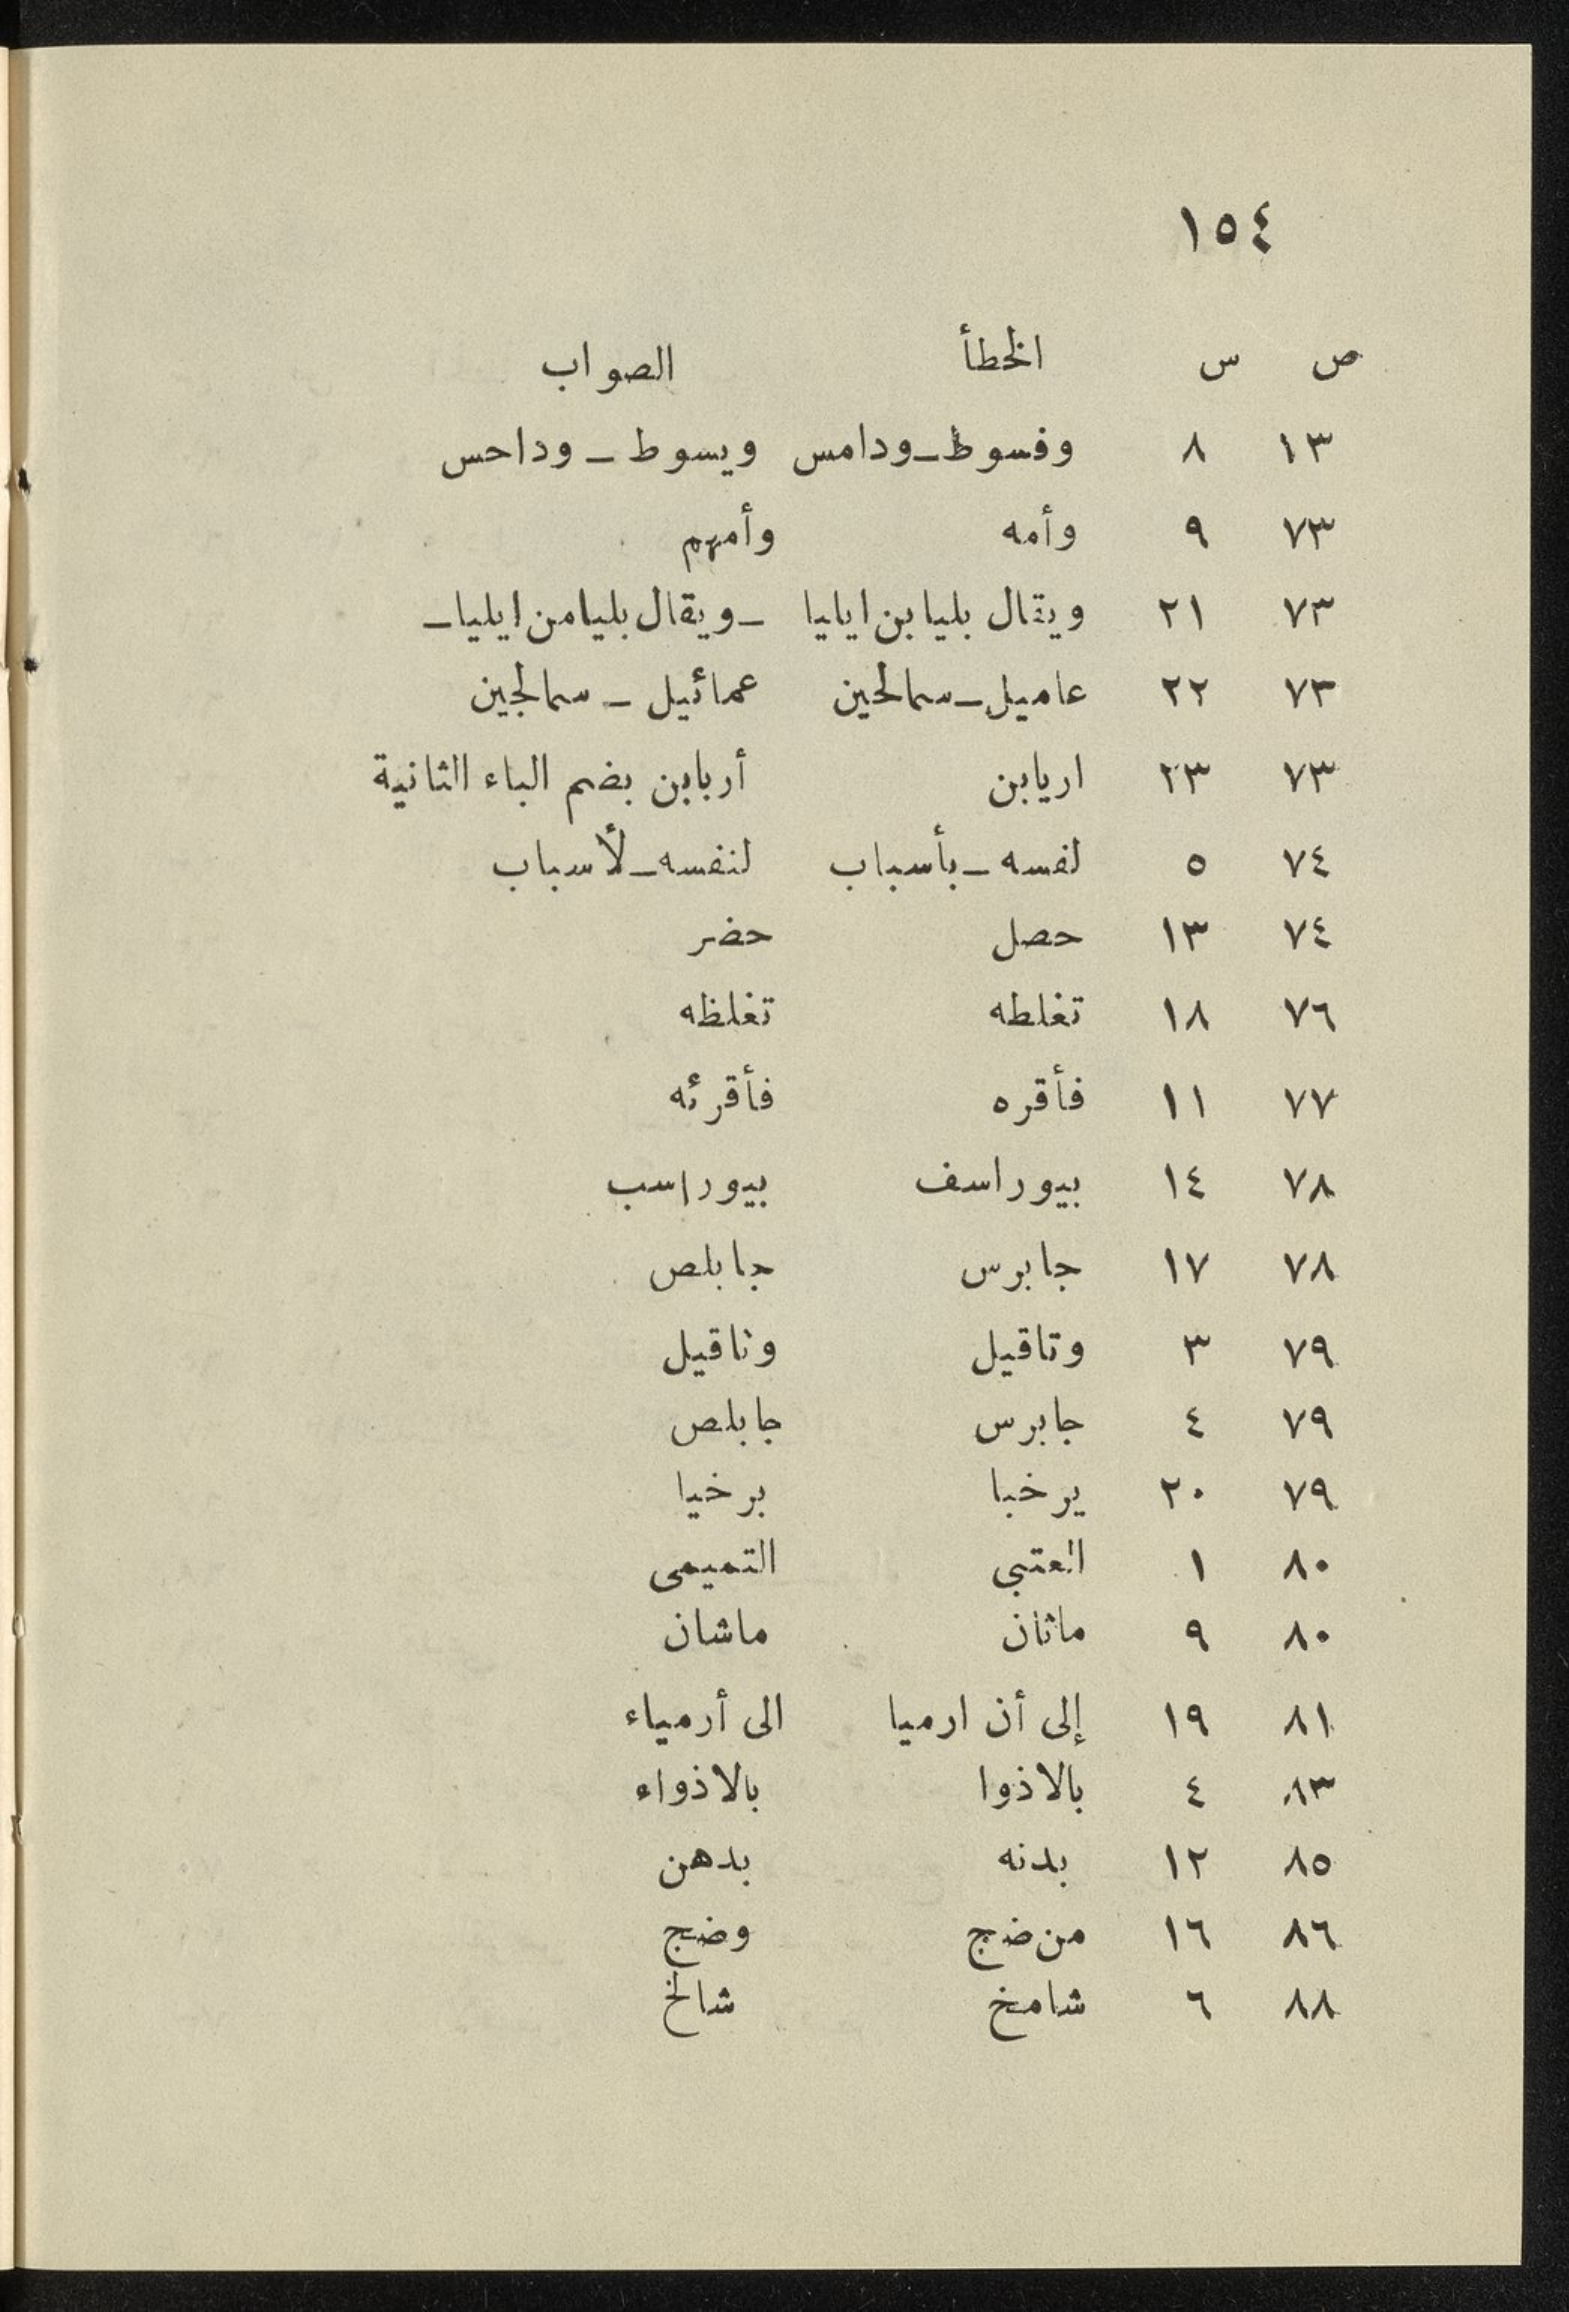 ١٥٤
ص س الخطأ الصواب
١٣ ٨ وفسوط ـ ودامس ويسوط ـ وداحس
٧٣ ٩ وأمه وأمهم
٧٣ ٢١ ويقال بليا بن ايليا ـ ويقال بليا من ايليا ـ
٧٣ ٢٢ عاميل ـ سمالحين عمائيل ـ سمالجين
٧٣ ٢٣ اريابن أربابن بضم الباء الثانية
٧٤ ٥ لفسه ـ بأسباب لنفسه ـ لأسباب
٧٤ ١٣ حصل حضر
٧٦ ١٨ تغلطه تغلظه
٧٧ ١١ فأقره فأقرئه
٧٨ ١٤ بيوراسف بيوراسب
٧٨ ١٧ جابرس جابلص
٧٩ ٣ وتاقيل وناقيل
٧٩ ٤ جابرس جابلص
٧٩ ٢٠ يرخبا برخيا
٨٠ ١ العتبى التميمى
٨٠ ٩ ماثان ماشان
٨١ ١٩ إلى أن ارميا الى أرمياء
٨٣ ٤ بالاذوا بالاذواء
٨٥ ١٢ بدنه بدهن
٨٦ ١٦ من ضج وضج
٨٨ ٦ شامخ شالخ